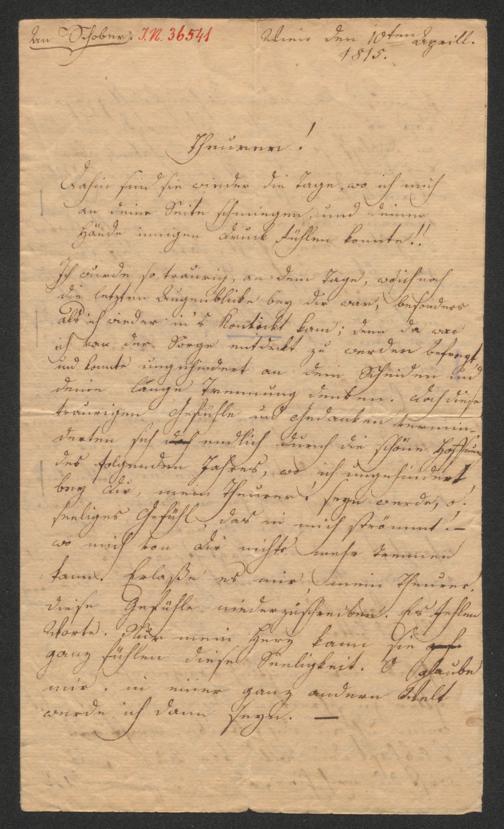 An Schober. I.N. 36541 Wien den 10ten Aprill.
1815.
Theurer!
Dahin sind sie wieder die Tage, wo ich mich
an deine Seite schmiegen, und deiner
Hände innigen Druck fühlen konnte!!
Ich wurde so traurig, an dem Tage, wo ich noch
die letzten Augenblicke bey dir war, besonders
als ich wieder in's Konvickt kam; denn da war
ich von der Sorge entdeckt zu werden befreyt
und konnte ungehindert an dem Scheiden und
deine lange Trennung denken. Doch diese
traurigen Gefühle und Gedanken vermin-
derten sich endlich durch die schöne Hoffnung
des folgenden Jahres, wo ich ungehindert
bey dir, mein Theurer! seyn werde, o!
seeliges Gefühl, das in mich strömmt! –
wo mich von dir nichts mehr trennen
kann. Erlaße es mir, mein Theurer!
diese Gefühle niederzuschreiben. Es fehlen
Worte. Nur mein Herz kann sie
ganz fühlen diese Seeligkeit. O Glaube
mir, in einer ganz andern Welt
werde ich dann seyn. —